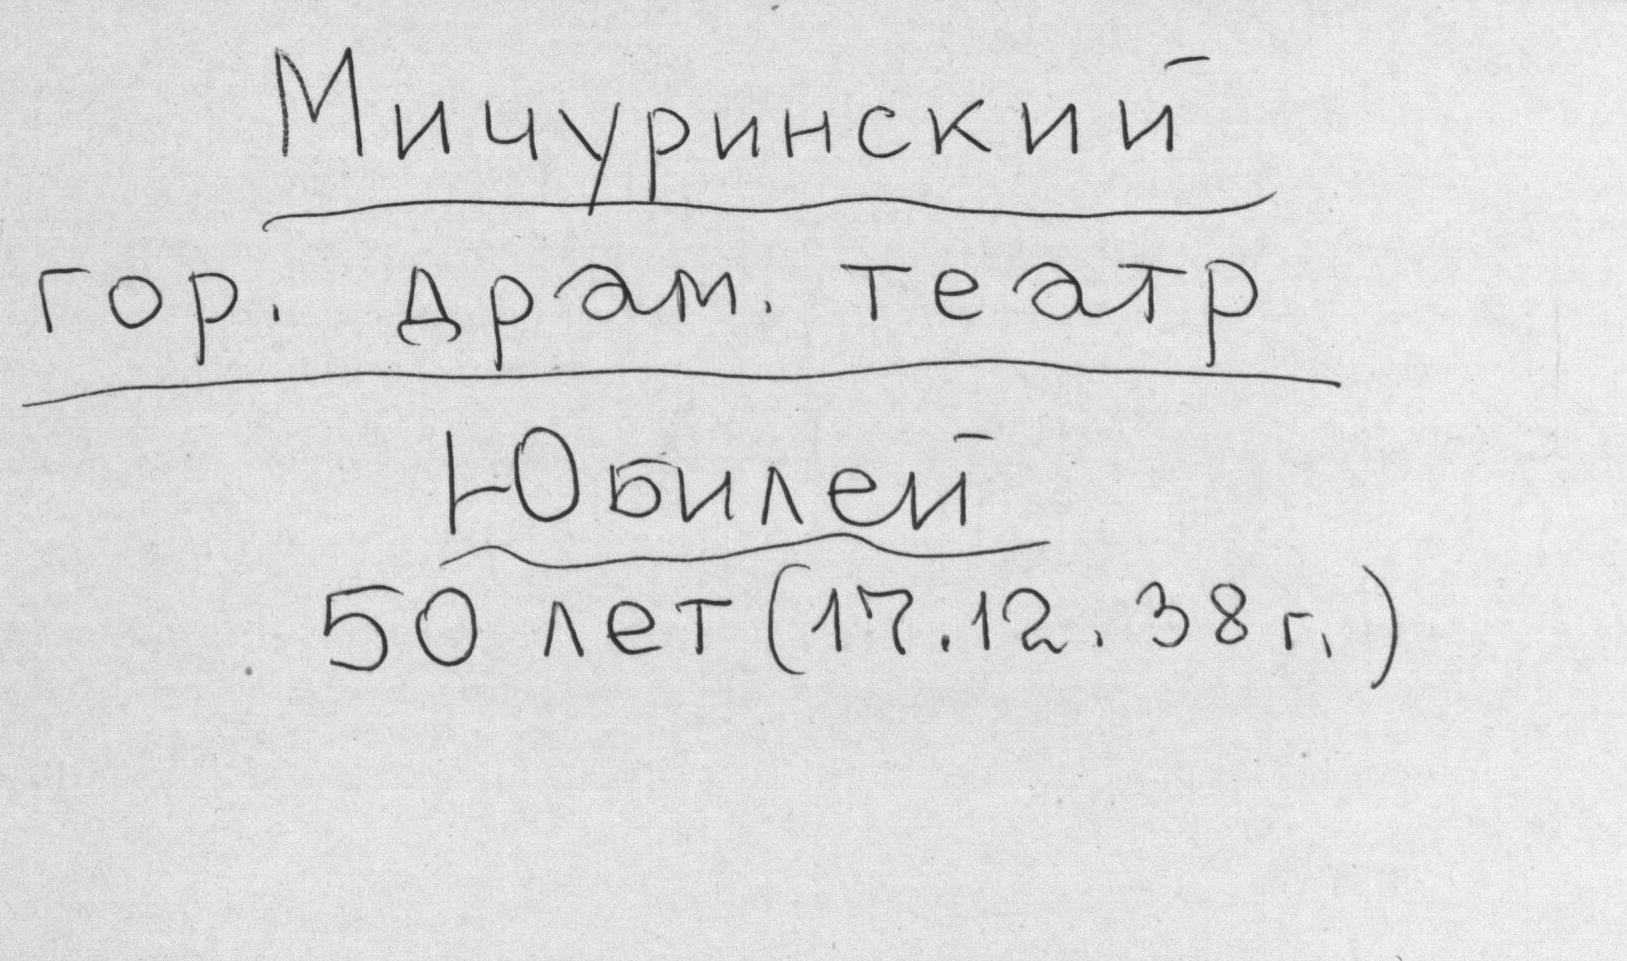 Мичуринский
гор. драм. театр
Юбилей
50 лет (17.12.38 г.)